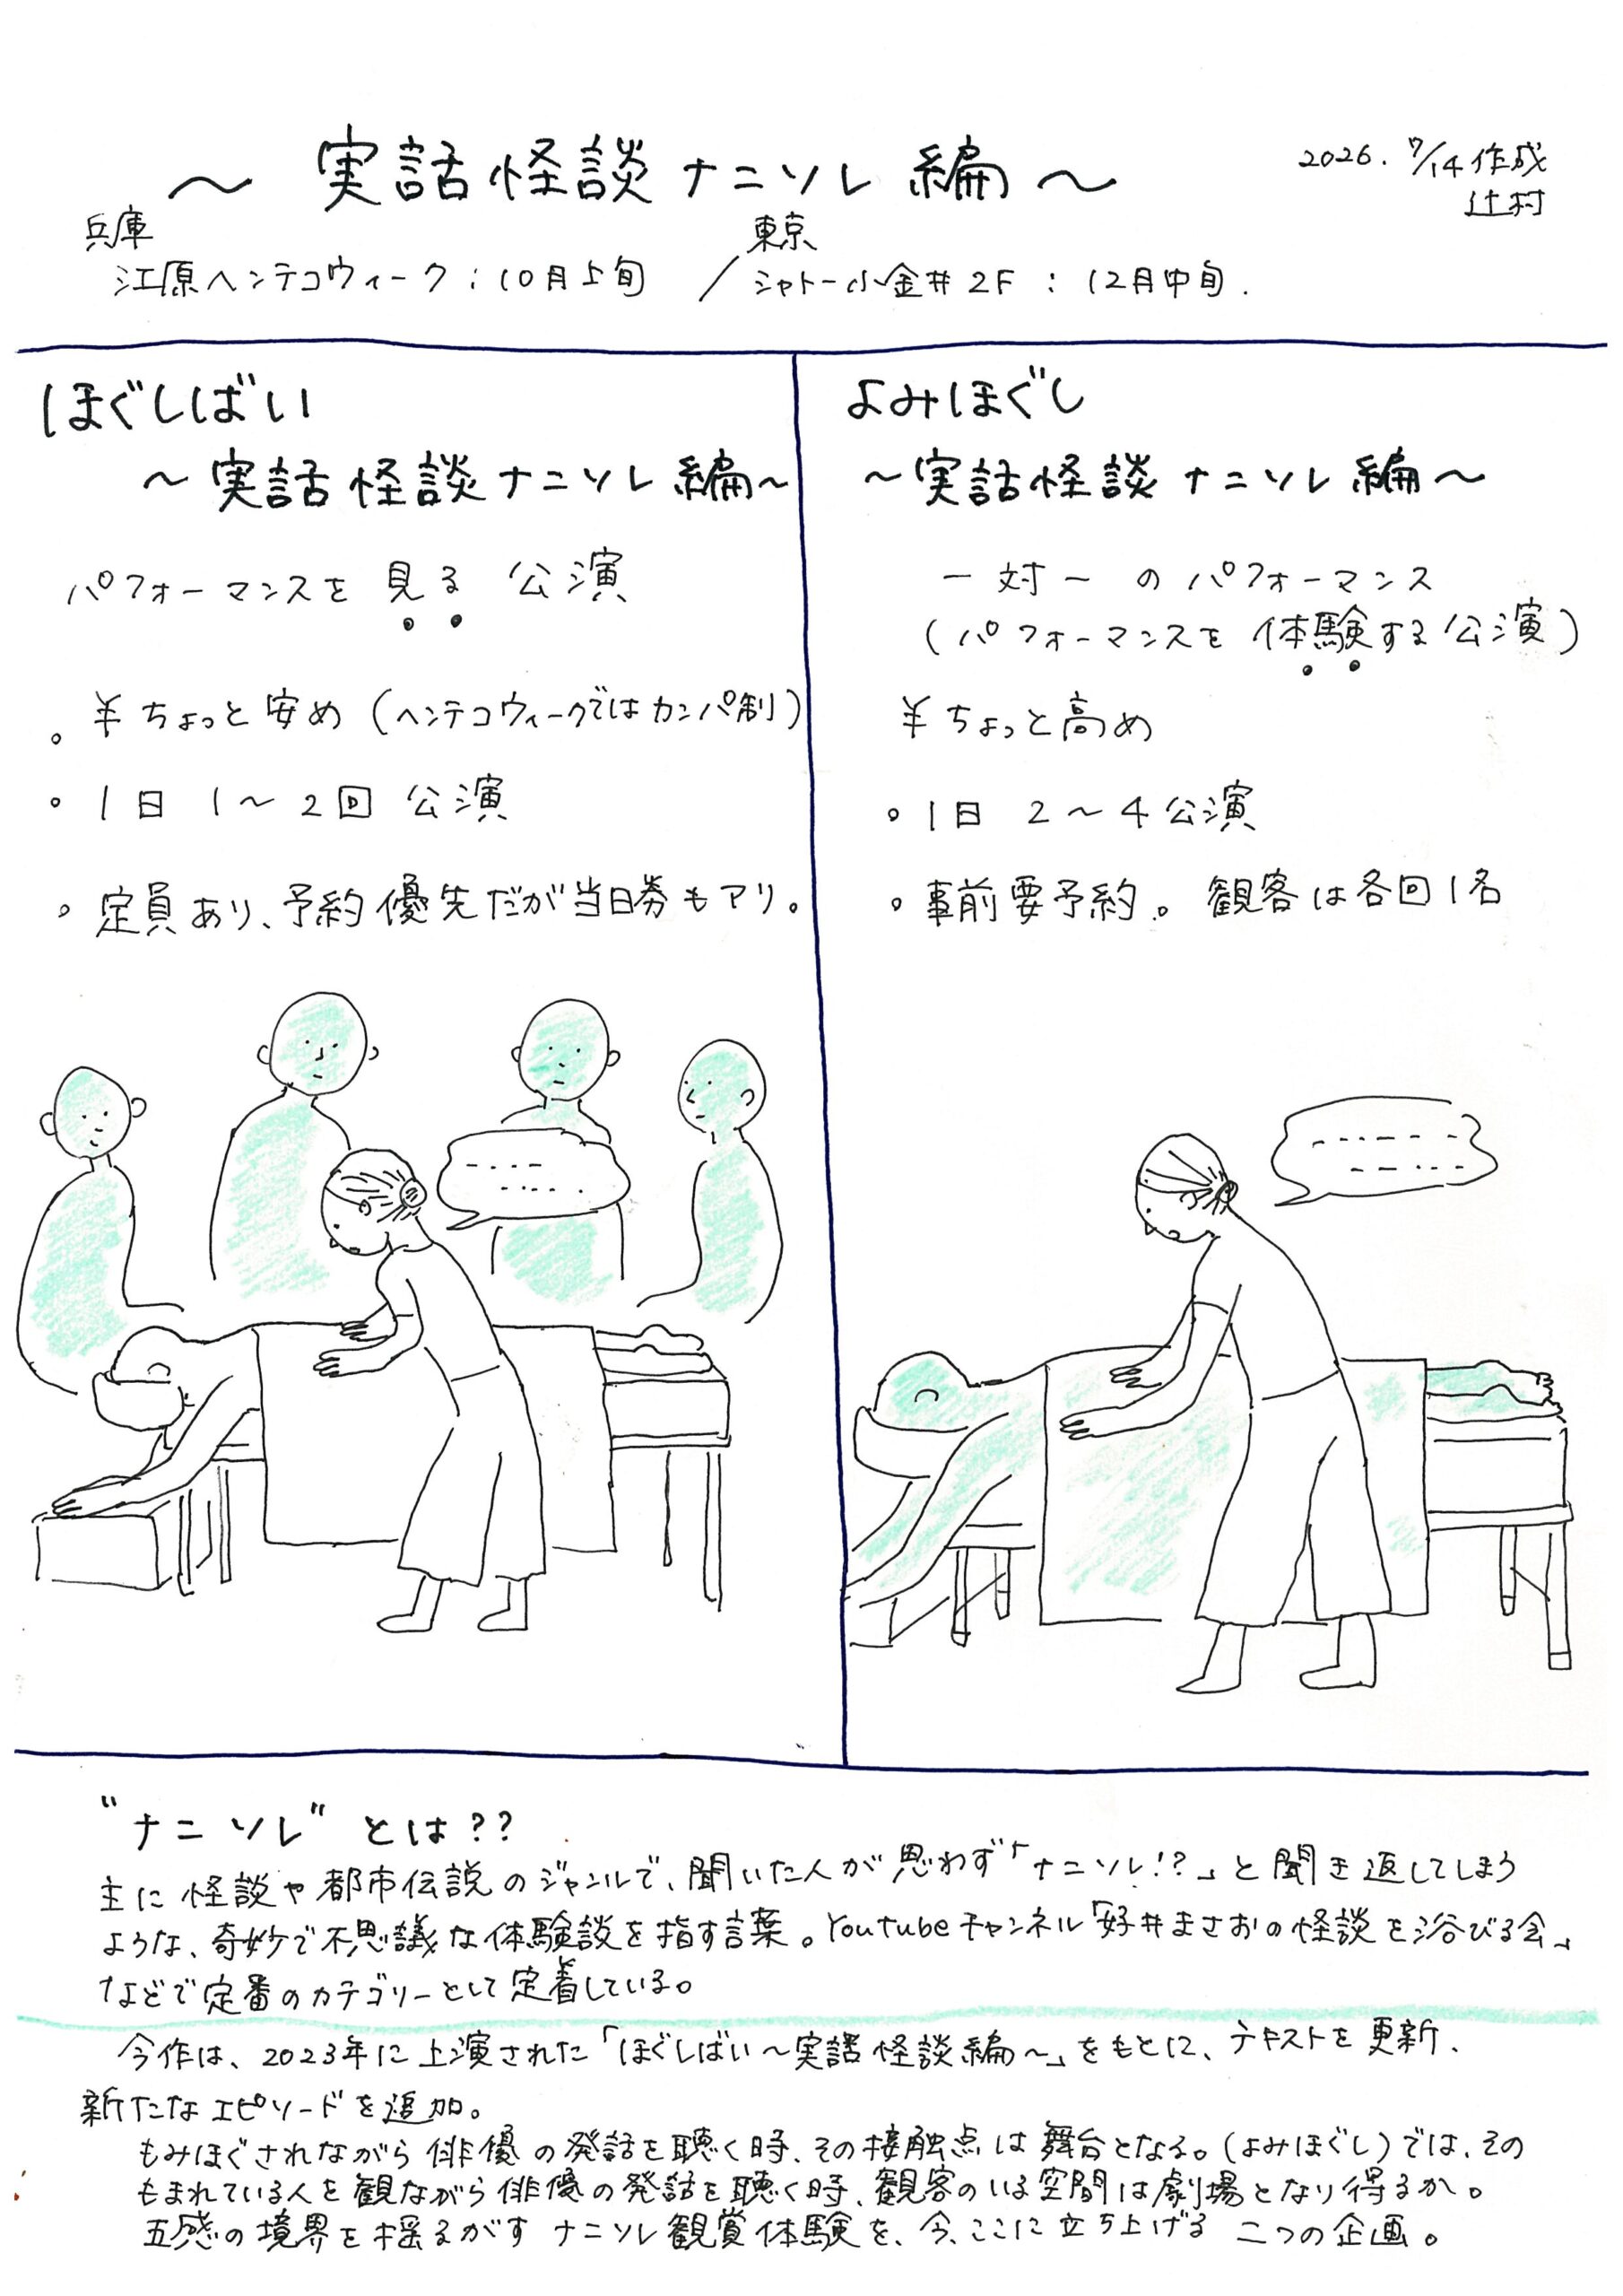 ～実話怪談ナニソレ編～
2026. 7/14作成
辻村
兵庫
江原ヘンテコウィーク：10月上旬
／
東京
シャトー小金井2F：12月中旬.
ほぐしばい
～実話怪談ナニソレ編～
パフォーマンスを見る公演
。¥ちょっと安め（ヘンテコウィークではカンパ制）
。1日 1～2回 公演
。定員あり、予約優先だが当日券もアリ。
よみほぐし
～実話怪談ナニソレ編～
一対一のパフォーマンス
（パフォーマンスを体験する公演）
¥ちょっと高め
。1日 2～4公演
。事前要予約。観客は各回1名
"ナニソレ"とは??
主に怪談や都市伝説のジャンルで、聞いた人が思わず「ナニソレ!?」と聞き返してしまう
ような、奇妙で不思議な体験談を指す言葉。Youtubeチャンネル「好井まさおの怪談を浴びる会」
などで定番のカテゴリーとして定着している。
今作は、2023年に上演された「ほぐしばい～実話怪談編～」をもとに、テキストを更新、
新たなエピソードを追加。
もみほぐされながら俳優の発話を聴く時、その接触点は舞台となる。（よみほぐし）では、その
もまれている人を観ながら俳優の発話を聴く時、観客のいる空間は劇場となり得るか。
五感の境界を揺るがすナニソレ観賞体験を、今、ここに立ち上げる 二つの企画。